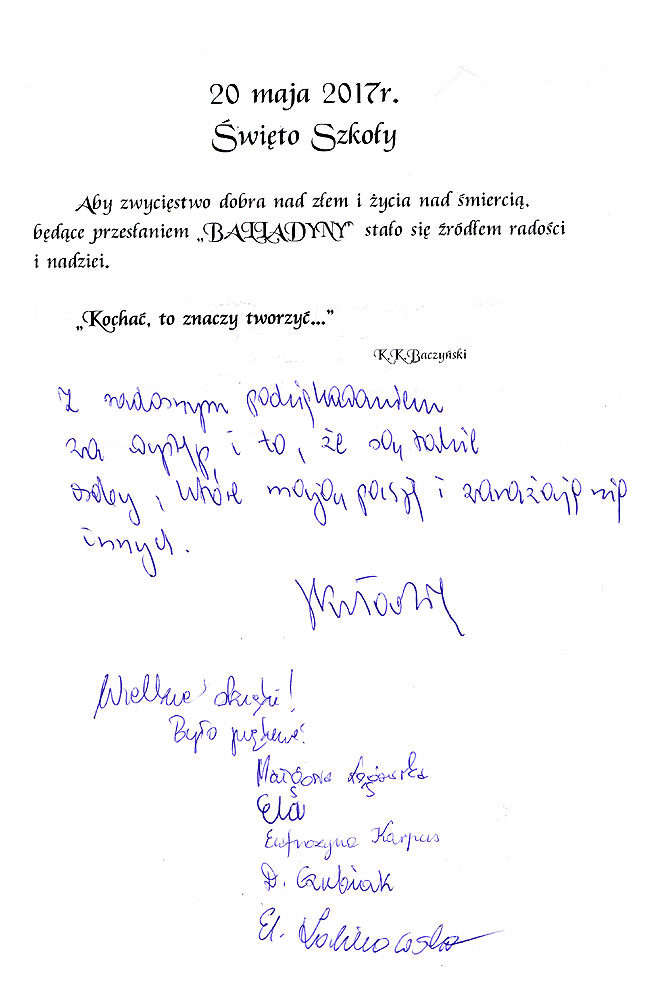 20 maja 2017r.
Święto Szkoły
Aby zwycięstwo dobra nad złem i życia nad śmiercią,
będące przesłaniem „BALLADYNY” stało się źródłem radości
i nadziei.
„Kochać, to znaczy tworzyć...”
K.K.Baczyński
Z radosnym podziękowaniem
za występ i to, że są takie
osoby, które mają pasję i zarażają nią
innych.
Wielkie dzięki!
Było pięknie!
Małgorzata
Ela
Eufrozyna Karpus
D. Czubiak
El.